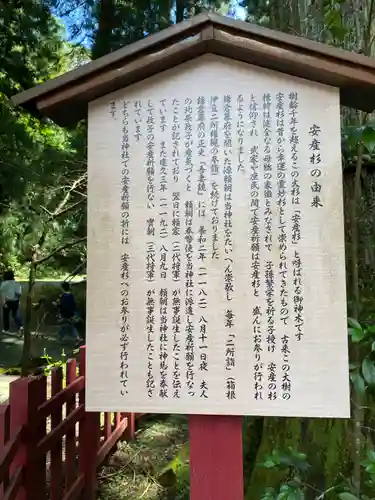 安産杉の由来
樹齢千年を越えるこの大杉は「安産杉」と呼ばれる御神木です
安産杉は昔から幸運の霊妙杉として崇められてきたもので 古来この大樹の
根幹は健全なる母胎の象徴とみなされて 子孫繁栄を祈る子授け 安産の杉
と信仰され 武家や庶民の間で安産祈願は安産杉と 盛んにお参りが行われ
るようになりました
鎌倉幕府を開いた源頼朝は当神社をたいへん崇敬し 毎年「二所詣」(箱根
伊豆二所権現の参詣)を続けておりました
鎌倉幕府の正史「吾妻鏡」には 養和二年(一一八二)八月十一日夜 夫人
の北条政子が産気づくと 頼朝は奉幣使を当神社に派遣し安産祈願を行なっ
たことが記されており 翌日に頼家(二代将軍)が無事誕生したことを伝え
ています また建久三年(一一九二)八月九日 頼朝は当神社に神馬を奉献
して政子の安産祈願を行ない 実朝(三代将軍)が無事誕生したことも記さ
れています
どちらも当神社での安産祈願の折には 安産杉へのお参りが必ず行われてい
ます。